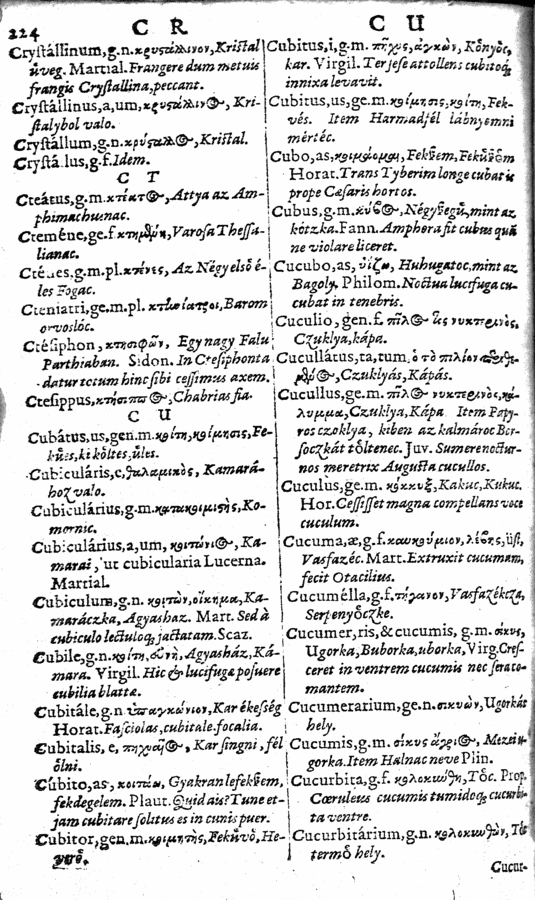 224 C R
Crystállinum, g.n. κρυςάλλινον, Kristal
üveg. Martial. Frangere dum metuis
frangis Crystallina, peccant.
Crystállinus, a, um, κρυςάλλινος, Kri-
stalybol valo.
Crystállum, g.n. κρύςαλλος, Kristal.
Crystállus, g.f. Idem.
C T
Cteátus, g.m. Attya az Am-
phimachusnac.
Cteméne, ge.f. κτημένη, Varosa Thessa-
lianac.
Cténes, g.m.pl. κτένες, Az Négy elsö é-
les Fogac.
Cteniatri, ge.m.pl. κτηνίατροι, Barom
orvosióc.
Ctésiphon, κτησιφῶν, Egy nagy Falu
Parthiaban. Sidon. In Ctesiphonta
datur totum hinc sibi cessimus axem.
Ctesippus, κτήσιππος, Chabrias fia.
C U
Cubátus, us, gen.m. κοίτη, κοίμησις, Fe-
küés, ki költes, üles.
Cubiculáris, e, θαλαμικὸς, Kamará-
hoz valo.
Cubiculárius, g.m. κατακοιμιςὴς, Ko-
mornic.
Cubiculárius, a, um, κοιτώνιος, Ka-
marai, ut cubicularia Lucerna.
Martial.
Cubiculum, g.n. κοιτὼν, οἴκημα, Ka-
maráczka, Agyashaz. Mart. Sed à
cubiculo lectuloq; jactatam. Scaz.
Cubile, g.n. κοίτη, εὐνὴ, Agyasház, Ká-
mara. Virgil. Hic & lucifugæ posuere
cubilia blattæ.
Cubitále, g.n. ὑπαγκώνιον, Kar ékesség
Horat. Fasciolas, cubitale. focalia.
Cubitalis, e, πηχυαῖος, Kar singni, fél
ölni.
Cúbito, as, κοιτάω, Gyakran lefekszem,
fekdegelem. Plaut. Quid ais? Tune et-
jam cubitare solitus es in cunis puer.
Cubitor, gen.m. κοιμητὴς, Feküvö, He-
C U
Cubitus, i, g.m. πῆχυς, ἀγκών, Könyöc,
kar. Virgil. Ter sese attollens cubitoq;
innixa levavit.
Cubitus, us, ge.m. κοίμησις, κοίτη, Fek-
vés. Item Harmadjél lábnyemni
mértéc.
Cubo, as, κοιμάομαι, Fekszem, Feküszöm
Horat. Trans Tyberim longe cubat is
prope Cæsaris hortos.
Cubus, g.m. κύβος, Négyszegü, mint az
kötzka. Fann. Amphora fit cubus quā
ne violare liceret.
Cucubo, as, ὑΐζω, Huhugatoc, mint az
Bagoly. Philom. Noctua lucifuga cu-
cubat in tenebris.
Cuculio, gen.f. πῖλος ὡς νυκτερινὸς,
Czuklya, kápa.
Cucullátus, ta, tum, ὁ τὸ πιλίον
Czuklyás, Kápás.
Cucullus, ge.m. πῖλος νυκτερινὸς, κά-
λυμμα, Czuklya, Kápa Item Papy-
ros czoklya, kiben az kalmároc Bor-
soczkát töltenec. Juv. Sumere noctur-
nos meretrix Augusta cucullos.
Cucúlus, ge.m. κόκκυξ, Kakuc, Kukuc.
Hor. Cessisset magna compellans voce
cuculum.
Cucuma, æ, g.f. κουκούμιον, λέβης, üst,
Vasfazéc. Mart. Extruxit cucumam,
fecit Otacilius.
Cucumélla, g.f. τήγανον, Vasfazékcza,
Serpenyöczke.
Cucumer, ris, & cucumis, g.m. σίκυς,
Ugorka, Buborka, uborka, Virg. Cres-
ceret in ventrem cucumis nec seraco-
mantem.
Cucumerarium, ge.n. σικυὼν, Ugorkás
hely.
Cucumis, g.m. σίκυς ἄγριος, Mezei u-
gorka. Item Halnac neve Plin.
Cucurbita, g.f. κολοκύνθη, Töc. Prop.
Cœruleus cucumis tumidoq; cucurbi-
ta ventre.
Cucurbitárium, g.n. κολοκυνθὼν, Töc
termö hely.
Cucur-